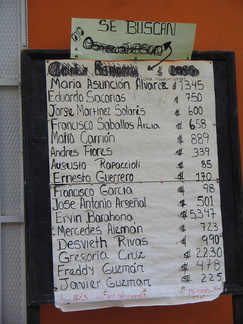 SE BUSCAN
María Asunción Alvarez $ 1345
Eduardo Sacarias $ 750
Jorge Martinez Solares $ 600
Francisco Saballos Arcia $ 658
Mario Carrión $ 889
Andres Flores $ 339
Augusto Rapaccioli $ 85
Ernesto Guerrero $ 170
Francisco Garcia $ 98
Jose Antonio Arsenal $ 501
Ervin Barahona $ 5347
Mercedes Aleman $ 723
Desvieth Rivas $ 990
Gregoria Cruz $ 2230
Freddy Guzmán $ 478
Javier Guzman $ 225